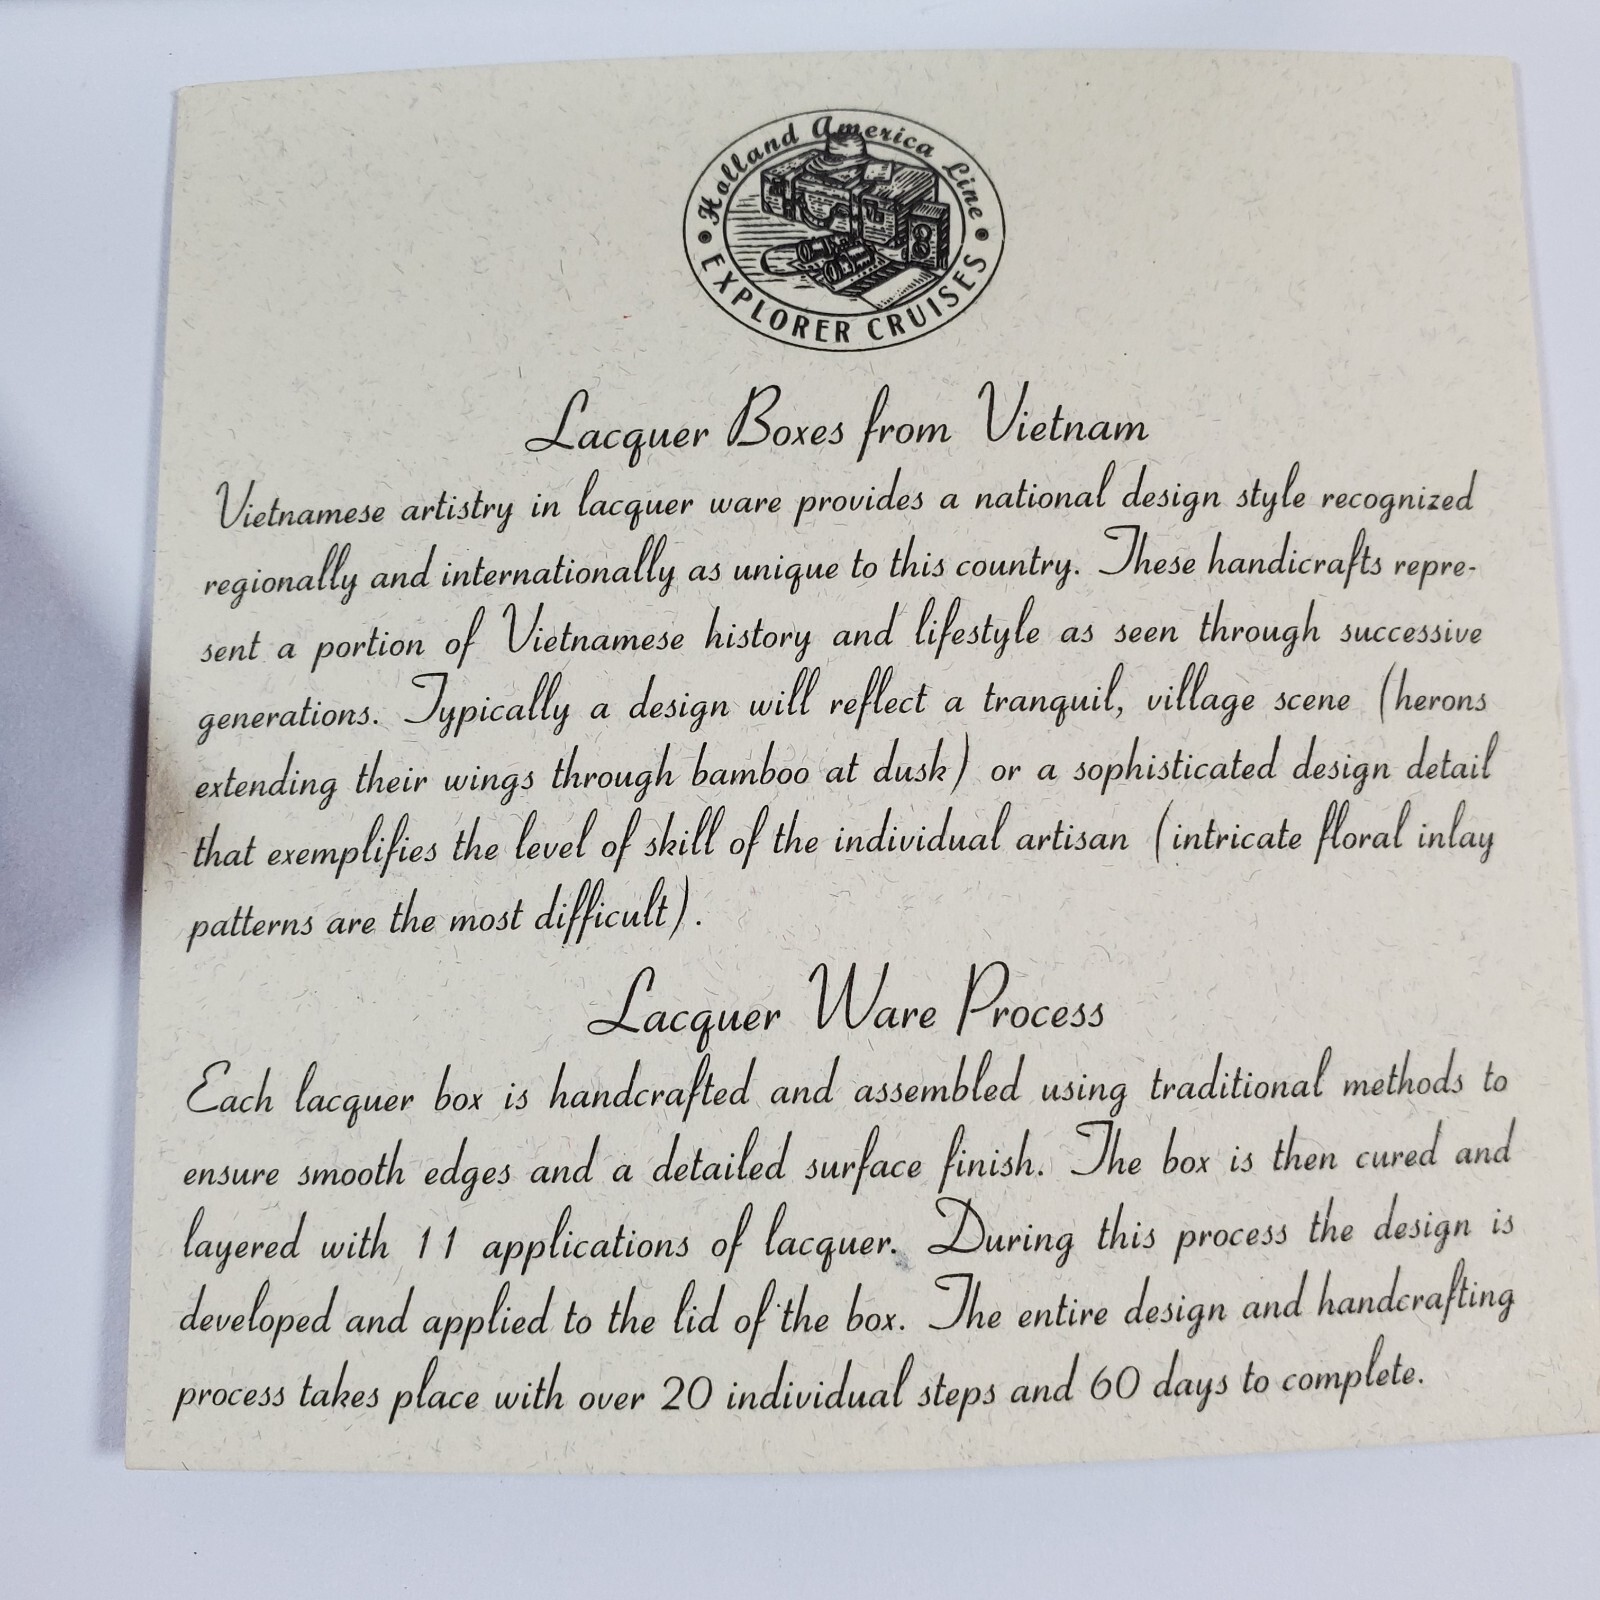 Holland America Line
EXPLORER CRUISES
Lacquer Boxes from Vietnam
Vietnamese artistry in lacquer ware provides a national design style recognized
regionally and internationally as unique to this country. These handicrafts repre-
sent a portion of Vietnamese history and lifestyle as seen through successive
generations. Typically a design will reflect a tranquil, village scene (herons
extending their wings through bamboo at dusk) or a sophisticated design detail
that exemplifies the level of skill of the individual artisan (intricate floral inlay
patterns are the most difficult).
Lacquer Ware Process
Each lacquer box is handcrafted and assembled using traditional methods to
ensure smooth edges and a detailed surface finish. The box is then cured and
layered with 11 applications of lacquer. During this process the design is
developed and applied to the lid of the box. The entire design and handcrafting
process takes place with over 20 individual steps and 60 days to complete.